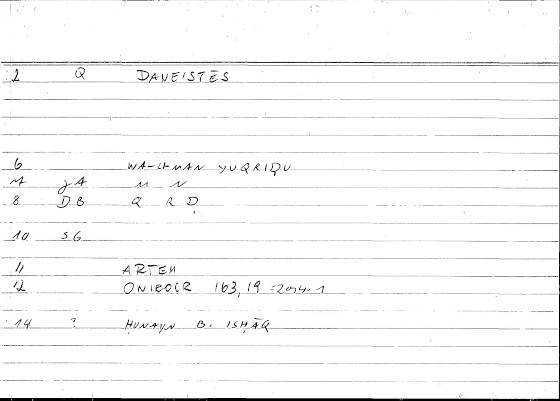 2 Q DANEISTĒS
6 WA-LMAN YUQRIḌU
7 JA M N
8 DB Q R Ḍ
10 SG
11 ARTEM
12 ONIROCR 163,19 =
14 ? ḤUNAYN B. ISḤĀQ